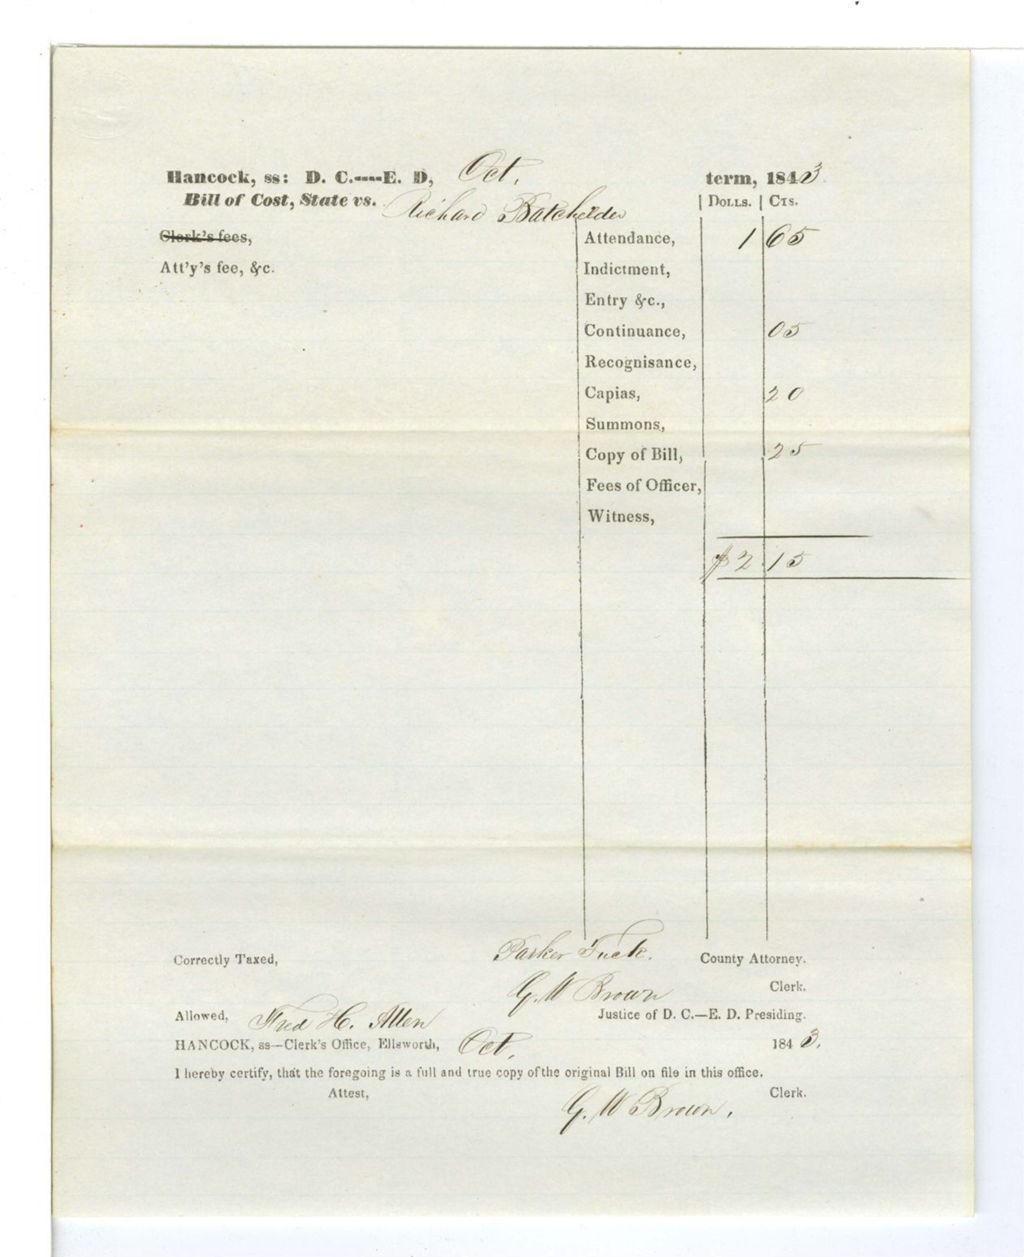 Hancock, ss: D. C.----E. D, Oct. term, 1843.
Bill of Cost, State vs. Richard Batchelder | Dolls. | Cts.
Clerk's fees, Attendance, 1 65
Att'y's fee, &c. Indictment,
Entry &c.,
Continuance, 05
Recognisance,
Capias, 20
Summons,
Copy of Bill, 25
Fees of Officer,
Witness,
$2 15
Correctly Taxed, Parker Tuck. County Attorney.
G. W Brown Clerk.
Allowed, Fred H. Allen Justice of D. C.—E. D. Presiding.
HANCOCK, ss—Clerk's Office, Ellsworth, Oct. 1843.
I hereby certify, that the foregoing is a full and true copy of the original Bill on file in this office.
Attest, G. W Brown. Clerk.